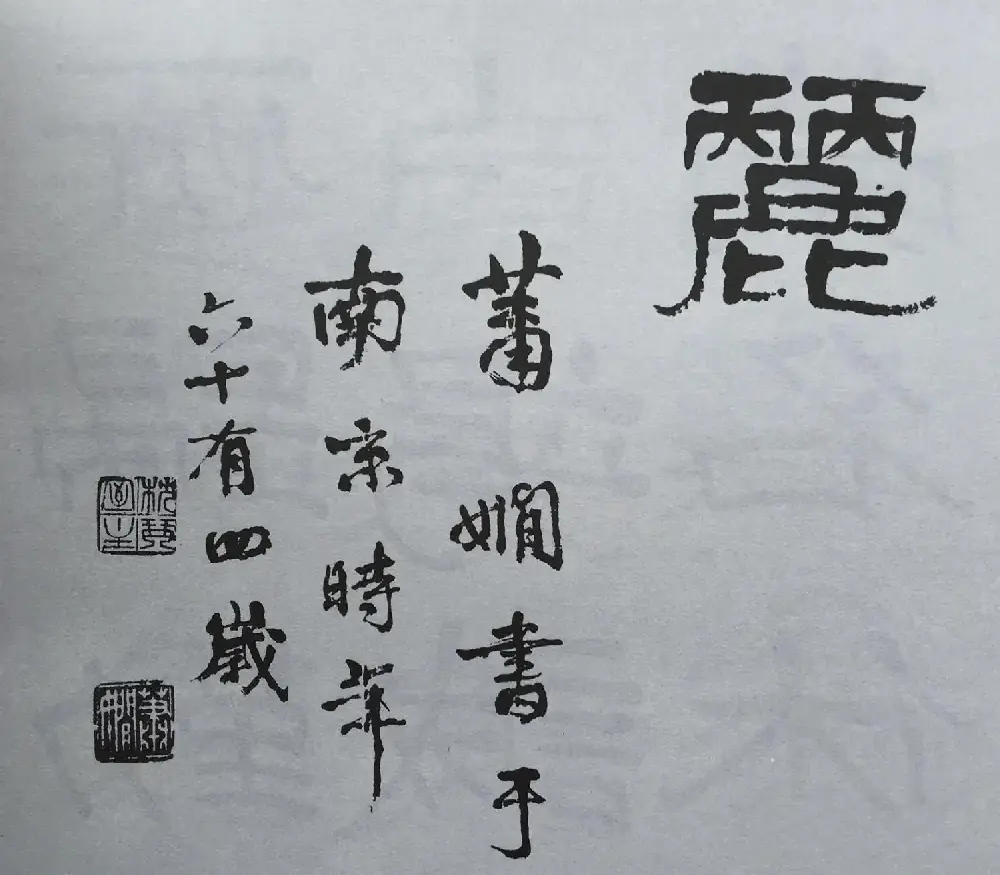 麗
蕭嫻書于
南京時年
六十有四歲
枕琴室主
蕭嫻